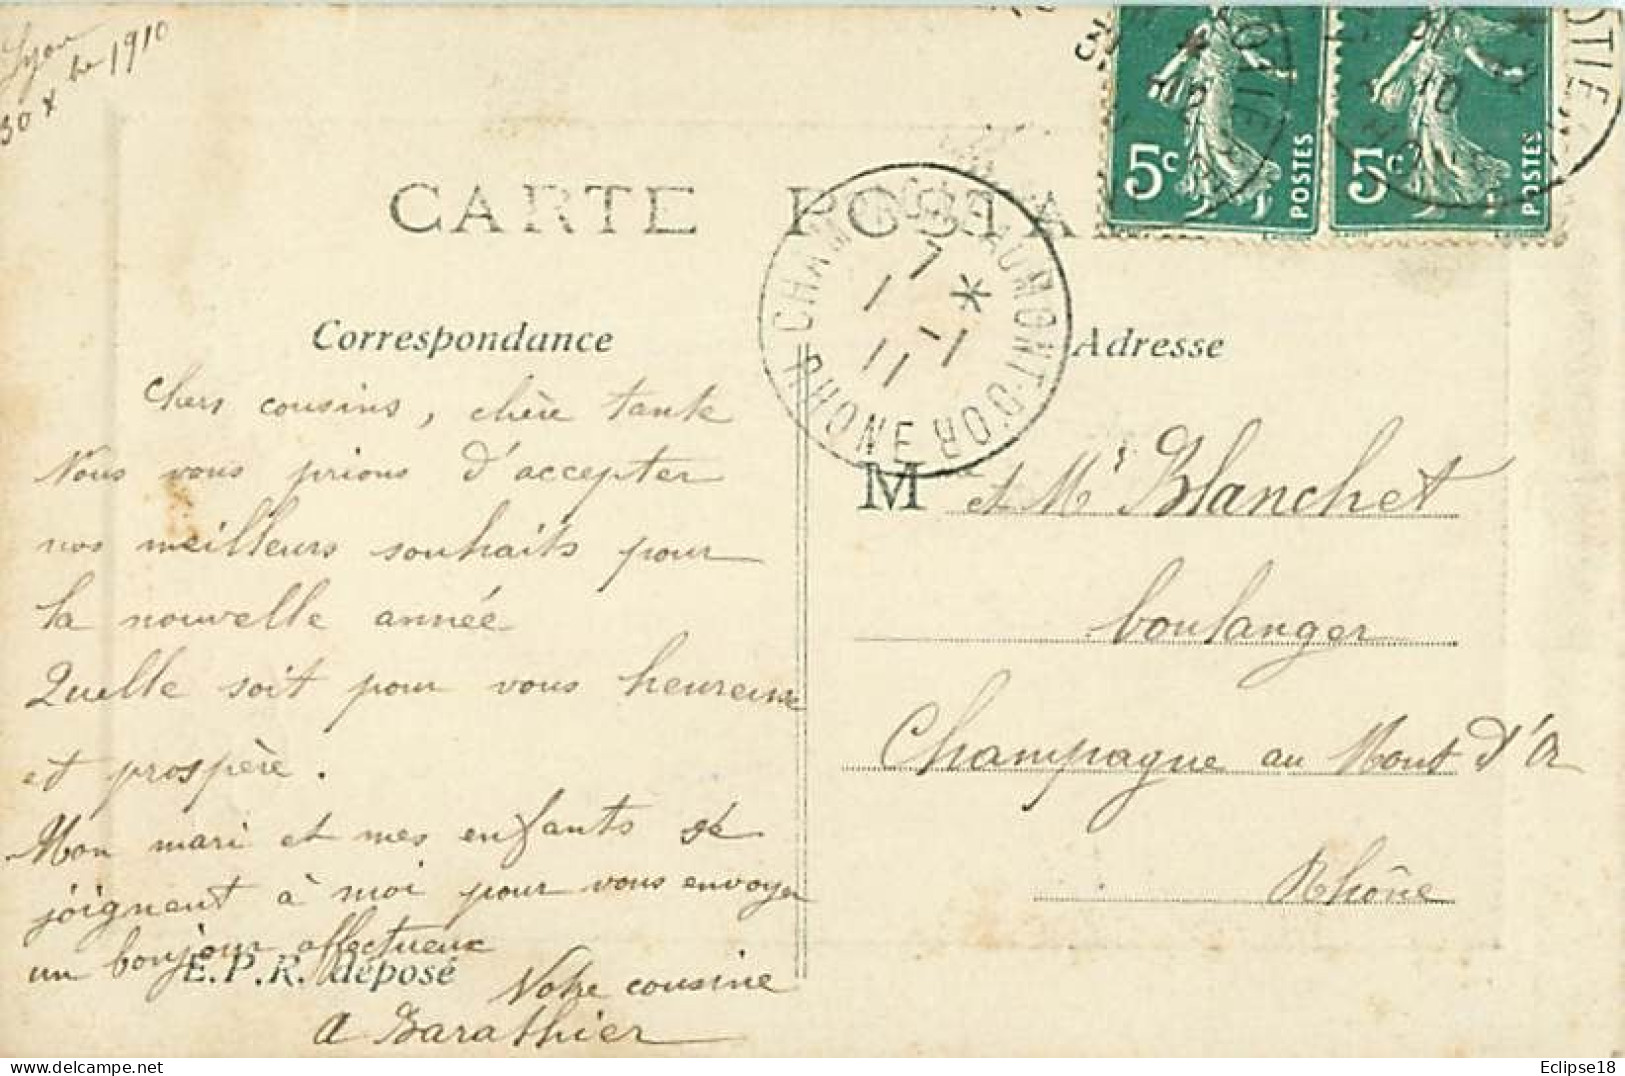 Lyon
30 Xbre 1910
CARTE POSTA
5c POSTES
5c POSTES
CHAMPAGNE-AU-MONT-D'OR RHONE
7
1 - 1
11
Correspondance
Adresse
Chers cousins, chère tante
Nous vous prions d'accepter
nos meilleurs souhaits pour
la nouvelle année
Quelle soit pour vous heureuse
et prospère.
Mon mari et mes enfants se
joignent à moi pour vous envoyer
un bonjour affectueux
E.P.R. déposé
Votre cousine
A Barathier
M et Me Blanchet
boulanger
Champagne au Mont d'Or
Rhône
Eclipse18